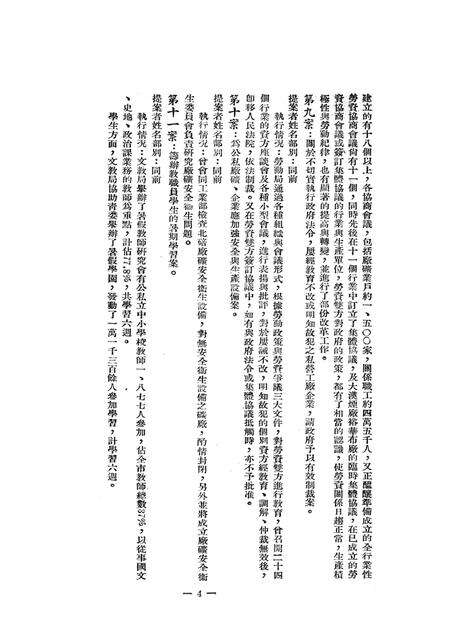 建立的有十八個以上，各協商會議，包括廠礦業戶約一、五〇〇家，關係職工約四萬五千人，又正醞釀準備成立的全行業性
勞資協商會議尙有十一個，同時先後在十一個行業中訂立了集體協議，及大漢煙廠裕華布廠的臨時集體協議，在已成立的勞
資協商會議或簽訂集體協議的行業與生產單位，勞資雙方對政府的政策，都有了相當的認識，使勞資關係日趨正常，生產積
極性與勞動紀律，也有顯著的提高與轉變，並進行了部份改革工作。
第九案：關於不切實執行政府法令，屢經教育不改或明知故犯之私營工廠企業，請政府予以有效制裁案。
提案者姓名部別：同前
執行情況：勞動局通過各種組織與會議形式，根據勞動政策與勞資爭議三大文件，對勞資雙方進行教育，曾召開二十四
個行業的資方座談會及各種小型會議，進行表揚與批評，對於屢誡不改，明知故犯的個別資方經教育、調解、仲裁無效後，
卽移人民法院，依法制裁。又在勞資雙方簽訂協議中，如有與政府法令或集體協議抵觸時，亦不予批准。
第十案：爲公私廠礦、企業應加强安全與生產設備案。
提案者姓名部別：同前
執行情況：曾會同工業部檢查北碚廠礦安全衛生設備，對無安全衛生設備之礦廠，酌情封閉，另外並將成立廠礦安全衛
生委員會負責研究廠礦安全衛生問題。
第十一案：籌辦教職員學生的暑期學習案。
提案者姓名部別：同前
執行情況：文教局舉辦了暑假教師研究會有公私立中小學校教師一、八七七人參加，佔全市教師總數37%，以從事國文
、史地、政治課業務的教師爲重點，計佔77.8%，共學習六週。
學生方面，文教局協助靑委舉辦了暑假學園，發動了一萬一千三百餘人參加學習，計學習六週。
— 4 —